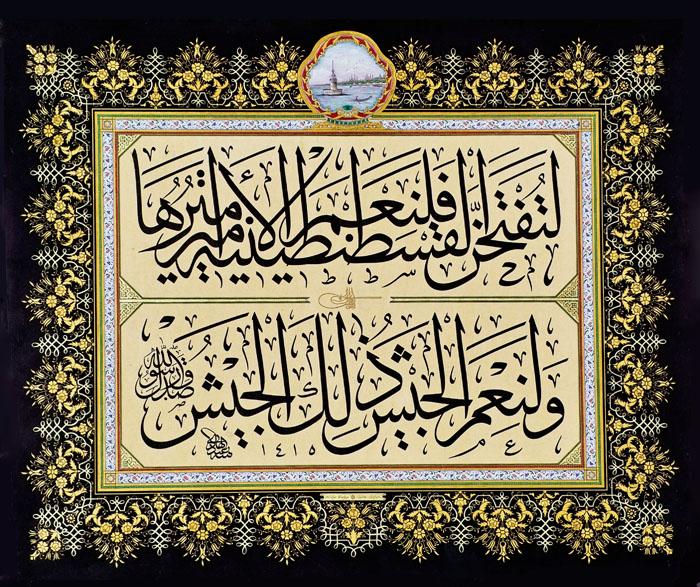 لتفتحن القسطنطينية فلنعم الأمير أميرها
ولنعم الجيش ذلك الجيش
صدق رسول الله
١٤١٥